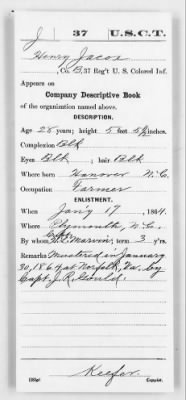 J | 37 | U.S.C.T.
Henry Jacox
Co. B, 37 Reg't U. S. Colored Inf.
Appears on
Company Descriptive Book
of the organization named above.
DESCRIPTION.
Age 28 years; height 5 feet 5½ inches.
Complexion Blk
Eyes Blk; hair Blk
Where born Hanover N. Co.
Occupation Farmer
ENLISTMENT.
When Jan'y 17, 1864.
Where Plymouth, N. Ca.
By whom Marvin; term 3 y'rs.
Remarks Mustered in January
30, 1864 at Norfolk, Va. by
Capt. J. R. Gould.
Keefer
Copyist.